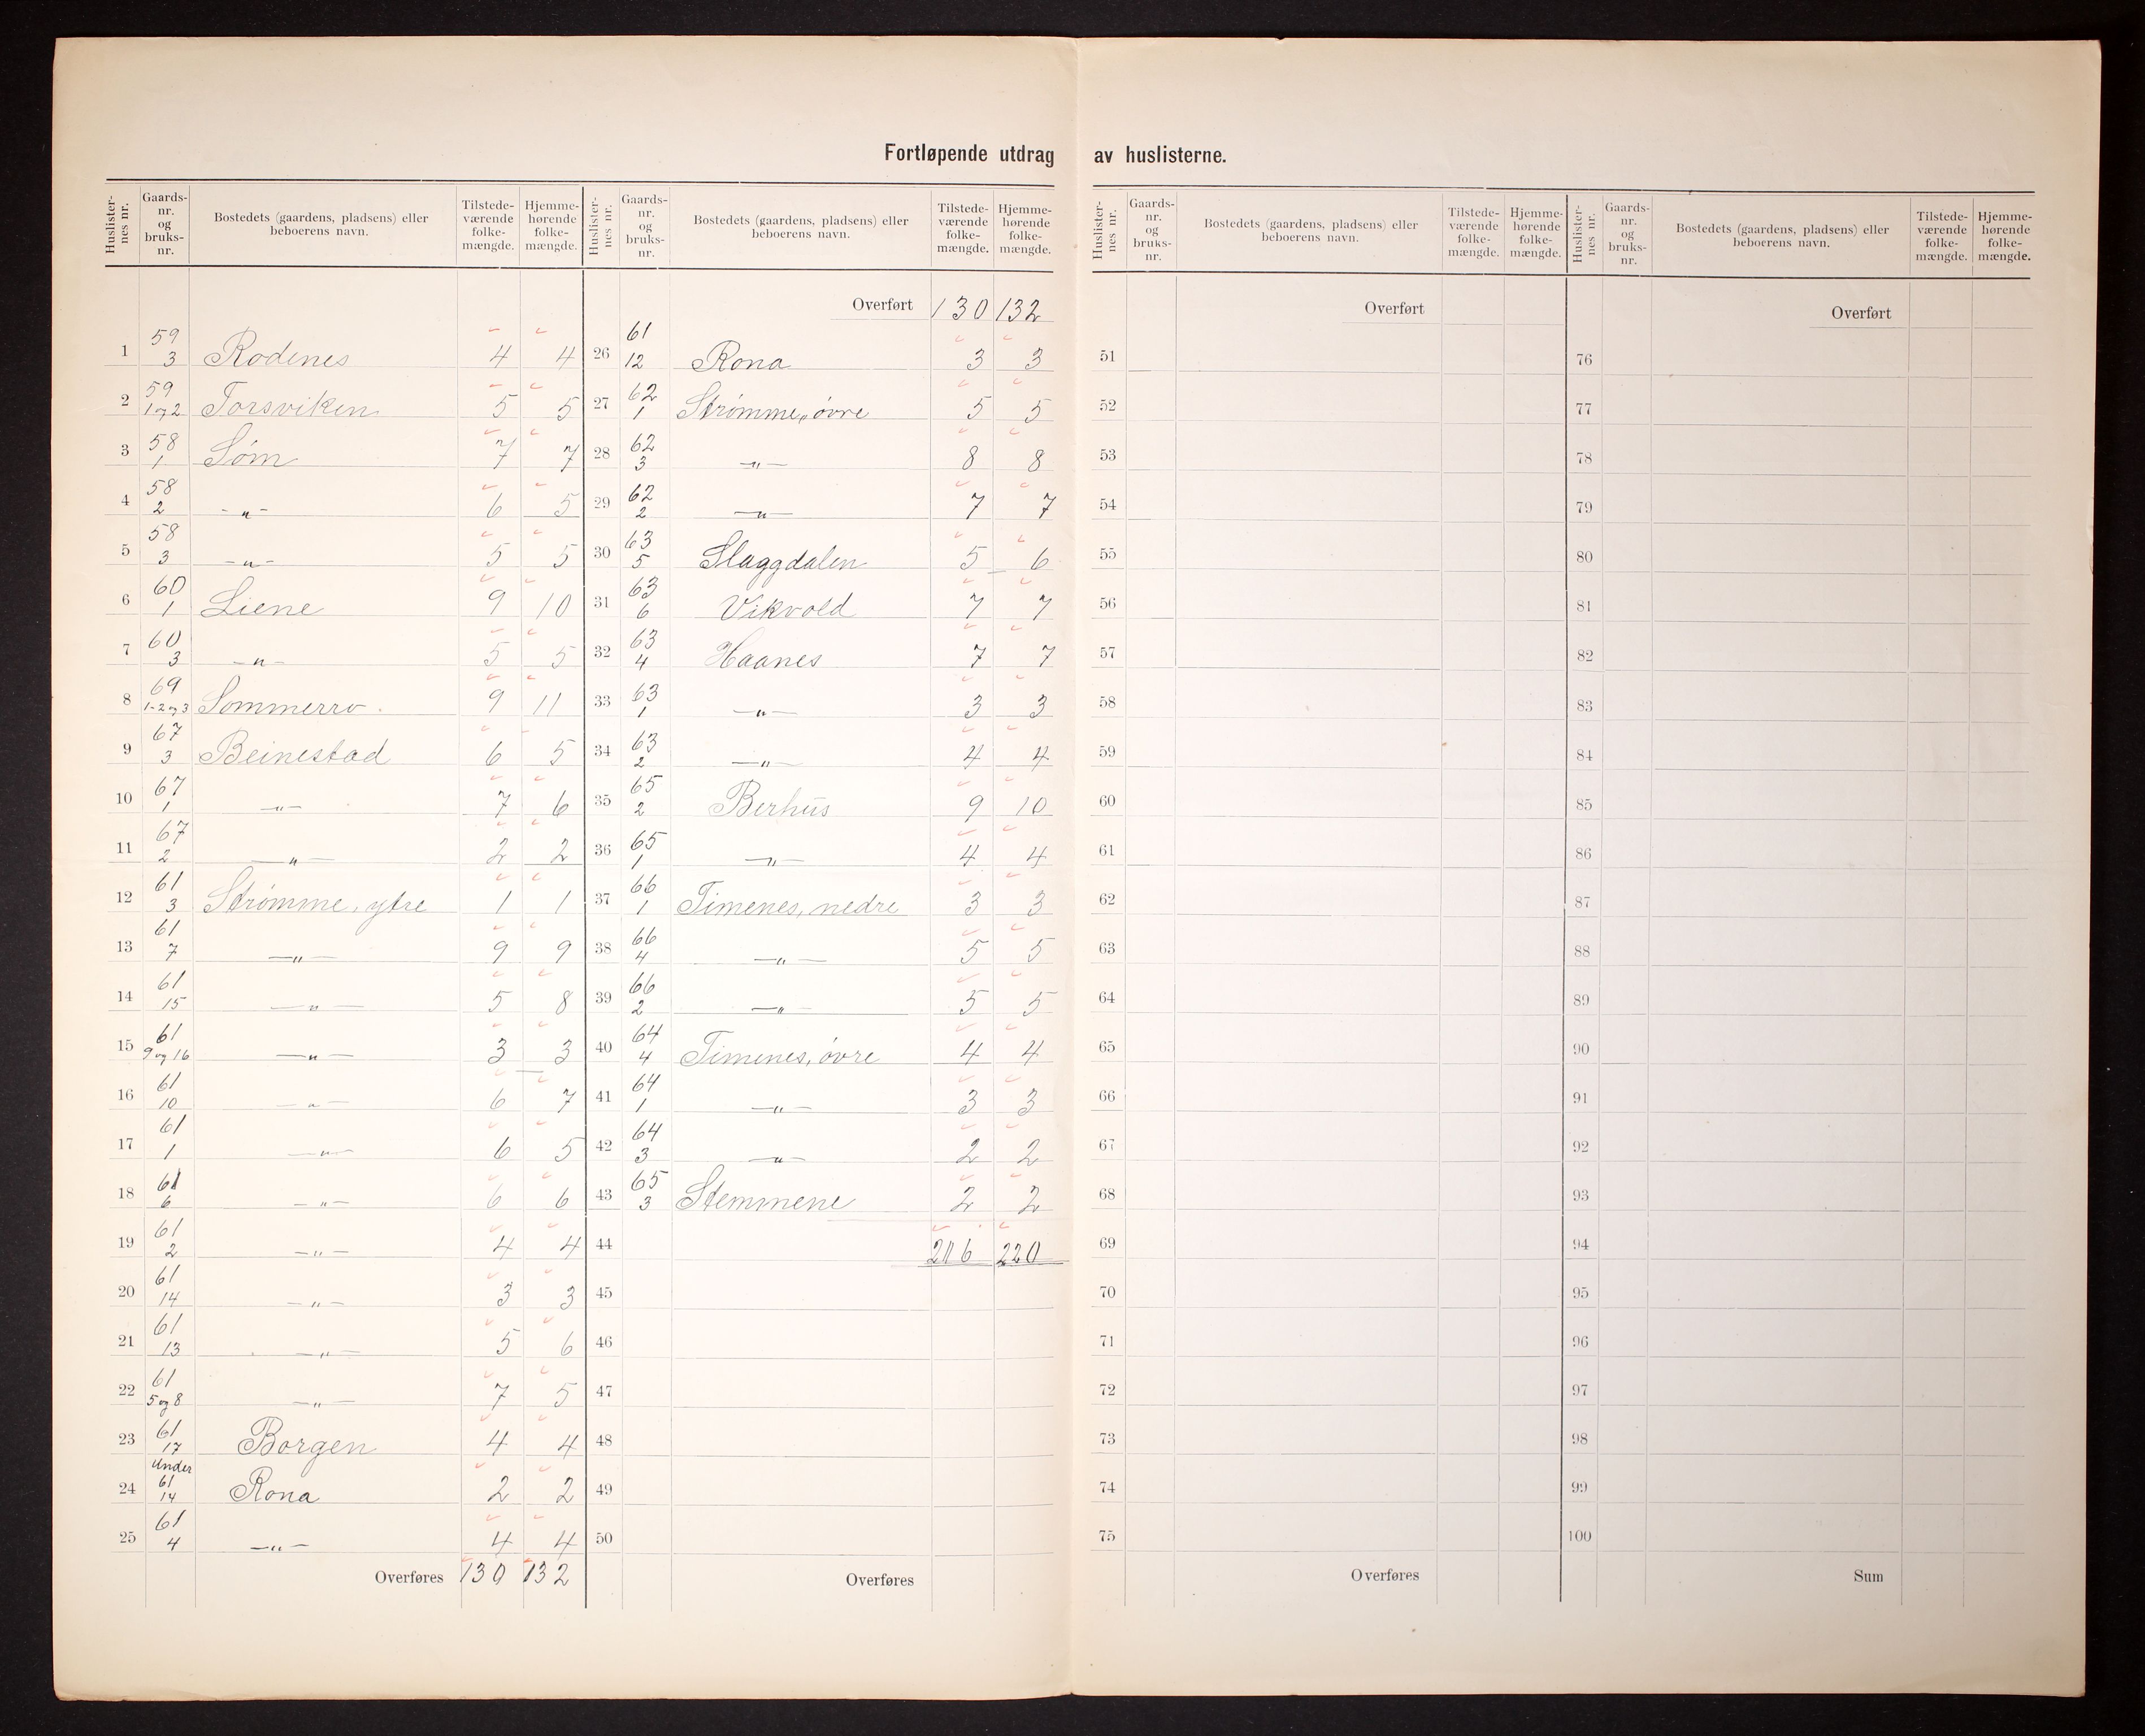 Fortløpende utdrag av huslisterne.
Huslisternes nr. Gaards-nr. og bruks-nr. Bostedets (gaardens, pladsens) eller beboerens navn. Tilstedeværende folkemængde. Hjemmehørende folkemængde.
1 59 3 Rodenes 4 4
2 59 1 og 2 Torsviken 5 5
3 58 1 Søm 7 7
4 58 2 -"- 6 5
5 58 3 -"- 5 5
6 60 1 Liene 9 10
7 60 3 -"- 5 5
8 69 1-2 og 3 Sommerro. 9 11
9 67 3 Beinestad 6 5
10 67 1 -"- 7 6
11 67 2 -"- 2 2
12 61 3 Strømme, ytre 1 1
13 61 7 -"- 9 9
14 61 15 -"- 5 8
15 61 9 og 16 -"- 3 3
16 61 10 -"- 6 7
17 61 1 -"- 6 5
18 61 6 -"- 6 6
19 61 2 -"- 4 4
20 61 14 -"- 3 3
21 61 13 -"- 5 6
22 61 5 og 8 -"- 7 5
23 61 17 Borgen 4 4
24 Under 61 14 Rona 2 2
25 61 4 -"- 4 4
Overføres 130 132
Huslisternes nr. Gaards-nr. og bruks-nr. Bostedets (gaardens, pladsens) eller beboerens navn. Tilstedeværende folkemængde. Hjemmehørende folkemængde.
Overført 130 132
26 61 12 Rona 3 3
27 62 1 Strømme, øvre 5 5
28 62 3 -"- 8 8
29 62 2 -"- 7 7
30 63 5 Slaggdalen 5 6
31 63 6 Vikvold 7 7
32 63 4 Haanes 7 7
33 63 1 -"- 3 3
34 63 2 -"- 4 4
35 65 2 Berhus 9 10
36 65 1 -"- 4 4
37 66 1 Timenes, nedre 3 3
38 66 4 -"- 5 5
39 66 2 -"- 5 5
40 64 4 Timenes, øvre 4 4
41 64 1 -"- 3 3
42 64 3 -"- 2 2
43 65 3 Stemmene 2 2
44 216 220
45
46
47
48
49
50
Overføres
Huslisternes nr. Gaards-nr. og bruks-nr. Bostedets (gaardens, pladsens) eller beboerens navn. Tilstedeværende folkemængde. Hjemmehørende folkemængde.
Overført
51
52
53
54
55
56
57
58
59
60
61
62
63
64
65
66
67
68
69
70
71
72
73
74
75
Overføres
Huslisternes nr. Gaards-nr. og bruks-nr. Bostedets (gaardens, pladsens) eller beboerens navn. Tilstedeværende folkemængde. Hjemmehørende folkemængde.
Overført
76
77
78
79
80
81
82
83
84
85
86
87
88
89
90
91
92
93
94
95
96
97
98
99
100
Sum